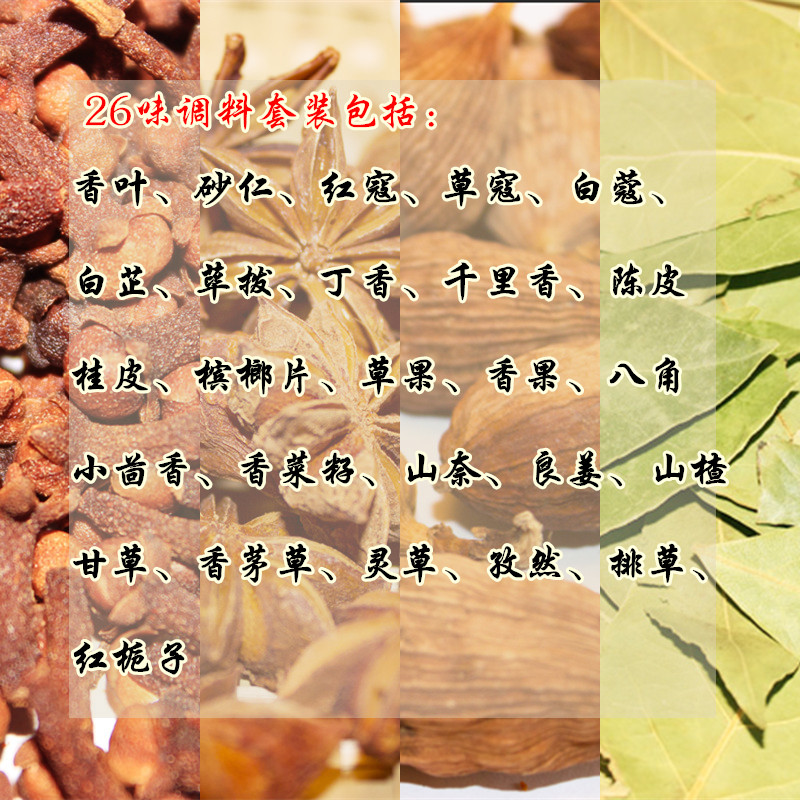 26味调料套装包括：
香叶、砂仁、红寇、草寇、白蔻、
白芷、荜拨、丁香、千里香、陈皮
桂皮、槟榔片、草果、香果、八角
小茴香、香菜籽、山奈、良姜、山楂
甘草、香茅草、灵草、孜然、排草、
红栀子